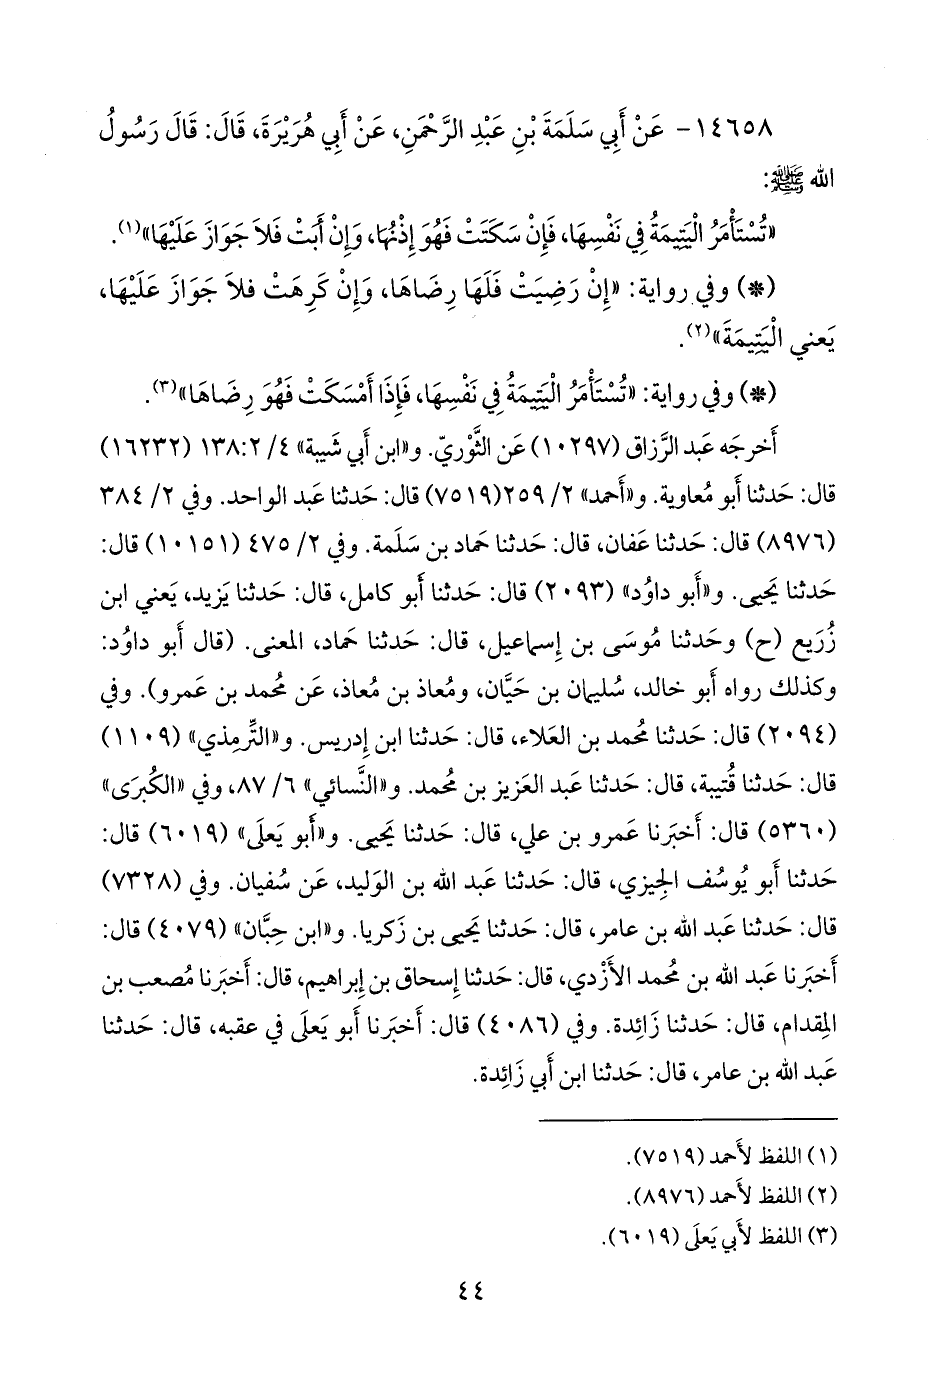 ١٤٦٥٨- عَنْ أَبِي سَلَمَةَ بْنِ عَبْدِ الرَّحْمَنِ، عَنْ أَبِي هُرَيْرَةَ، قَالَ: قَالَ رَسُولُ
الله ﷺ:
«تُسْتَأْمَرُ الْيَتِيمَةُ فِي نَفْسِهَا، فَإِنْ سَكَتَتْ فَهُوَ إِذْنُهَا، وَإِنْ أَبَتْ فَلاَ جَوَازَ عَلَيْهَا»(١).
(*) وفي رواية: «إِنْ رَضِيَتْ فَلَهَا رِضَاهَا، وَإِنْ كَرِهَتْ فَلاَ جَوَازَ عَلَيْهَا،
يَعني الْيَتِيمَةَ»(٢).
(*) وفي رواية: «تُسْتَأْمَرُ الْيَتِيمَةُ فِي نَفْسِهَا، فَإِذَا أَمْسَكَتْ فَهُوَ رِضَاهَا»(٣).
أَخرجَه عَبد الرَّزاق (١٠٢٩٧) عَن الثَّوريّ. و«ابن أَبي شَيبة» ٤/ ١٣٨:٢ (١٦٢٣٢)
قال: حَدثنا أَبو مُعاوية. و«أَحمد» ٢/ ٢٥٩(٧٥١٩) قال: حَدثنا عَبد الواحد. وفي ٢/ ٣٨٤
(٨٩٧٦) قال: حَدثنا عَفان، قال: حَدثنا حَماد بن سَلَمة. وفي ٢/ ٤٧٥ (١٠١٥١) قال:
حَدثنا يَحيى. و«أَبو داوُد» (٢٠٩٣) قال: حَدثنا أَبو كامل، قال: حَدثنا يَزيد، يَعني ابن
زُرَيع (ح) وحَدثنا مُوسَى بن إِسماعيل، قال: حَدثنا حَماد، المعنى. (قال أَبو داوُد:
وكذلك رواه أَبو خالد، سُليمان بن حَيَّان، ومُعاذ بن مُعاذ، عَن مُحمد بن عَمرو). وفي
(٢٠٩٤) قال: حَدثنا مُحمد بن العَلاء، قال: حَدثنا ابن إِدريس. و«التِّرمِذي» (١١٠٩)
قال: حَدثنا قُتيبة، قال: حَدثنا عَبد العَزيز بن مُحمد. و«النَّسائي» ٦/ ٨٧، وفي «الكُبرَى»
(٥٣٦٠) قال: أَخبَرنا عَمرو بن علي، قال: حَدثنا يَحيى. و«أَبو يَعلَى» (٦٠١٩) قال:
حَدثنا أَبو يُوسُف الجِيزي، قال: حَدثنا عَبد الله بن الوَليد، عَن سُفيان. وفي (٧٣٢٨)
قال: حَدثنا عَبد الله بن عامر، قال: حَدثنا يَحيى بن زَكريا. و«ابن حِبَّان» (٤٠٧٩) قال:
أَخبَرنا عَبد الله بن مُحمد الأَزْدي، قال: حَدثنا إِسحاق بن إِبراهيم، قال: أَخبَرنا مُصعب بن
المِقدام، قال: حَدثنا زَائِدة. وفي (٤٠٨٦) قال: أَخبَرنا أَبو يَعلَى في عقبه، قال: حَدثنا
عَبد الله بن عامر، قال: حَدثنا ابن أَبي زَائِدة.
(١) اللفظ لأَحمد (٧٥١٩).
(٢) اللفظ لأَحمد (٨٩٧٦).
(٣) اللفظ لأَبي يَعلَى (٦٠١٩).
٤٤